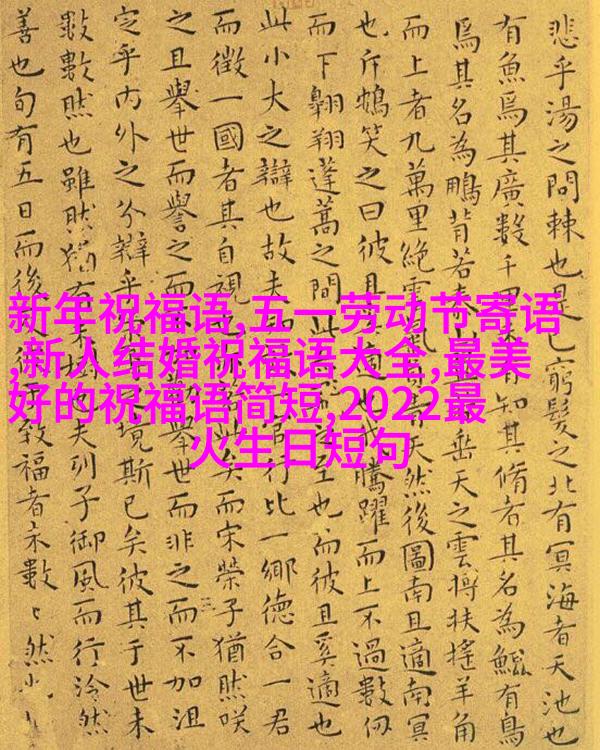 新年祝福语,五一劳动节寄语
,新人结婚祝福语大全,最美
好的祝福语简短,2022最
火生日短句
悲乎湯之問棘也是已窮髮之北有冥海者天池也
有魚焉其廣數千里有知其脩者其名為鯤有鳥
焉其名為鵬背若垂天之雲摶扶搖羊角
而上者九萬里絕雲氣天然後圖南且適南冥
也斥鴳笑之曰彼且適也騰躍而上不過數仞
而下翱翔蓬蒿之間此至也而彼且奚適也
此小大之辯也故夫行比一鄉德合一君
而徵一國者其自視矣而宋榮子猶然咲
之且舉世而譽之而不舉世而非之而不加沮
定乎內外之分辯乎境斯已矣彼其于世未
數數然也雖然猶有也夫列子御風而行泠然
善也旬有五日而後致福者未數〻然